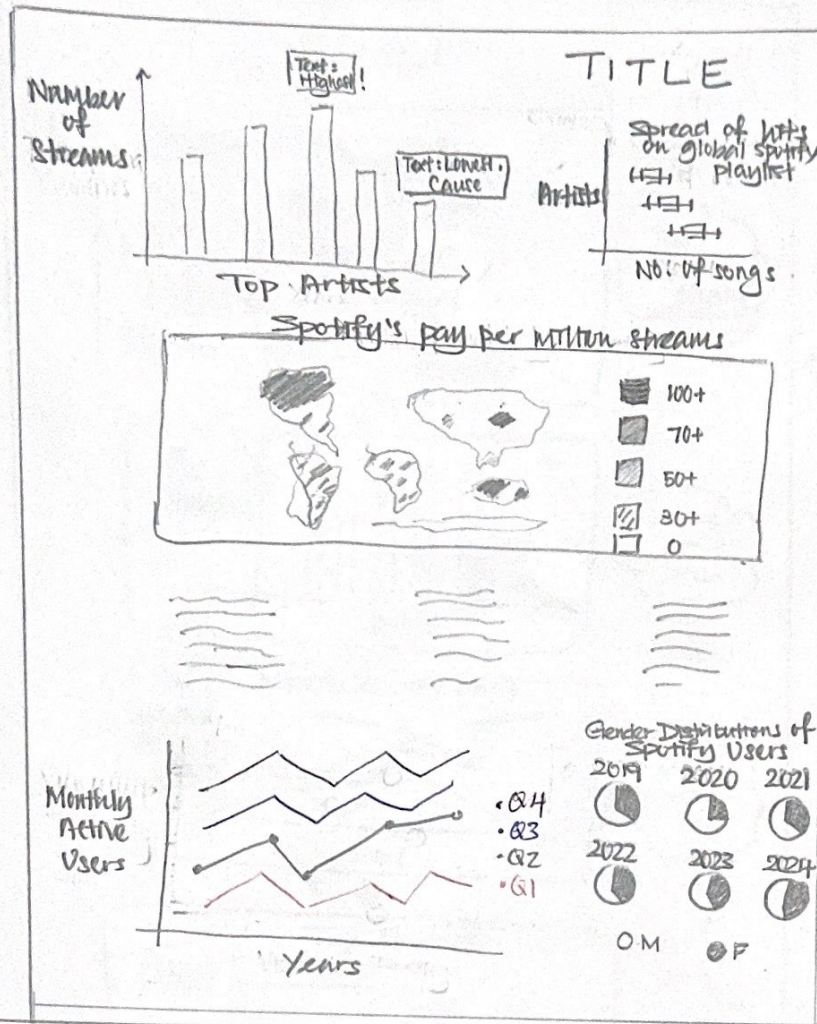 TITLE
Number
of
Streams
Text:
Highest!
Text: Lowest.
Cause
Top Artists
Spread of hits
on global spotify
playlist
Artists
No: of songs
Spotify's pay per million streams
100+
70+
50+
30+
0
Monthly
Active
Users
Years
Q4
Q3
Q2
Q1
Gender Distributions of
Spotify Users
2019 2020 2021
2022 2023 2024
M F